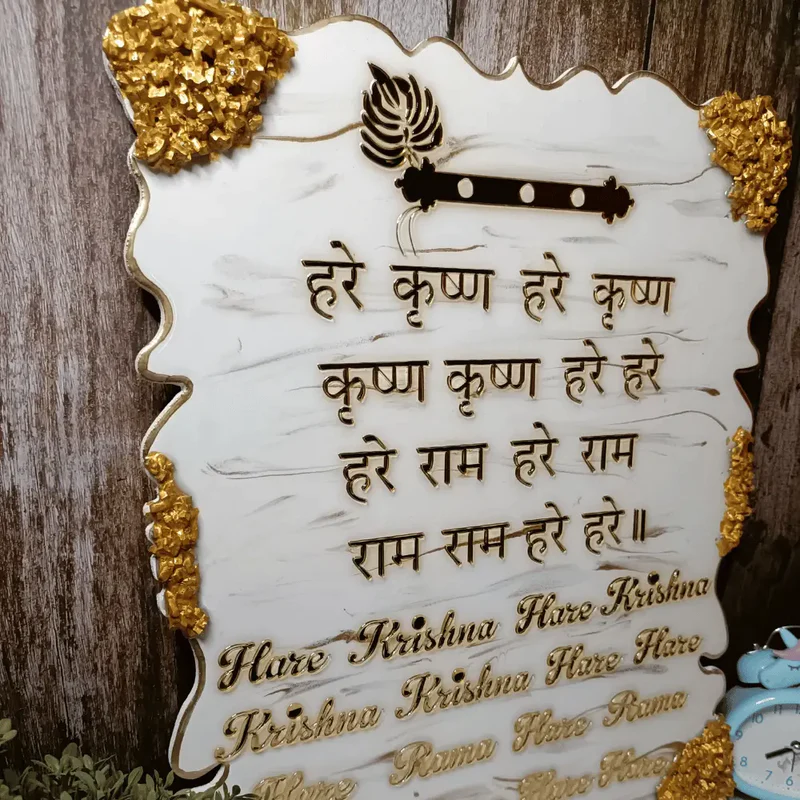 हरे कृष्ण हरे कृष्ण
कृष्ण कृष्ण हरे हरे
हरे राम हरे राम
राम साम हरे हरे॥
Hare Krishna Hare Krishna
Krishna Krishna Hare Hare
Hare Rama Hare Rama
Hare Hare